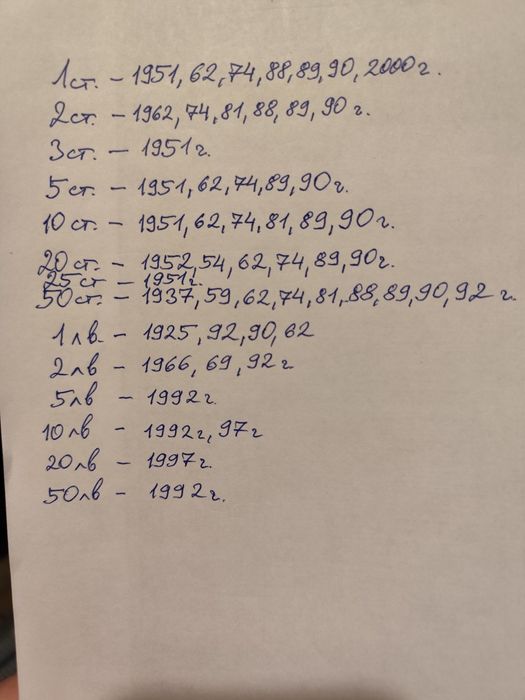 1ст. – 1951, 62, 74, 88, 89, 90, 2000г.
2ст. – 1962, 74, 81, 88, 89, 90г.
3ст. – 1951г.
5ст. – 1951, 62, 74, 89, 90г.
10ст. – 1951, 62, 74, 81, 89, 90г.
20ст. – 1952, 54, 62, 74, 89, 90г.
25ст – 1951г.
50ст. – 1937, 59, 62, 74, 81, 88, 89, 90, 92 г.
1лв. – 1925, 92, 90, 62
2лв – 1966, 69, 92г
5лв – 1992г.
10лв – 1992г, 97г
20лв – 1997г.
50лв – 1992г.